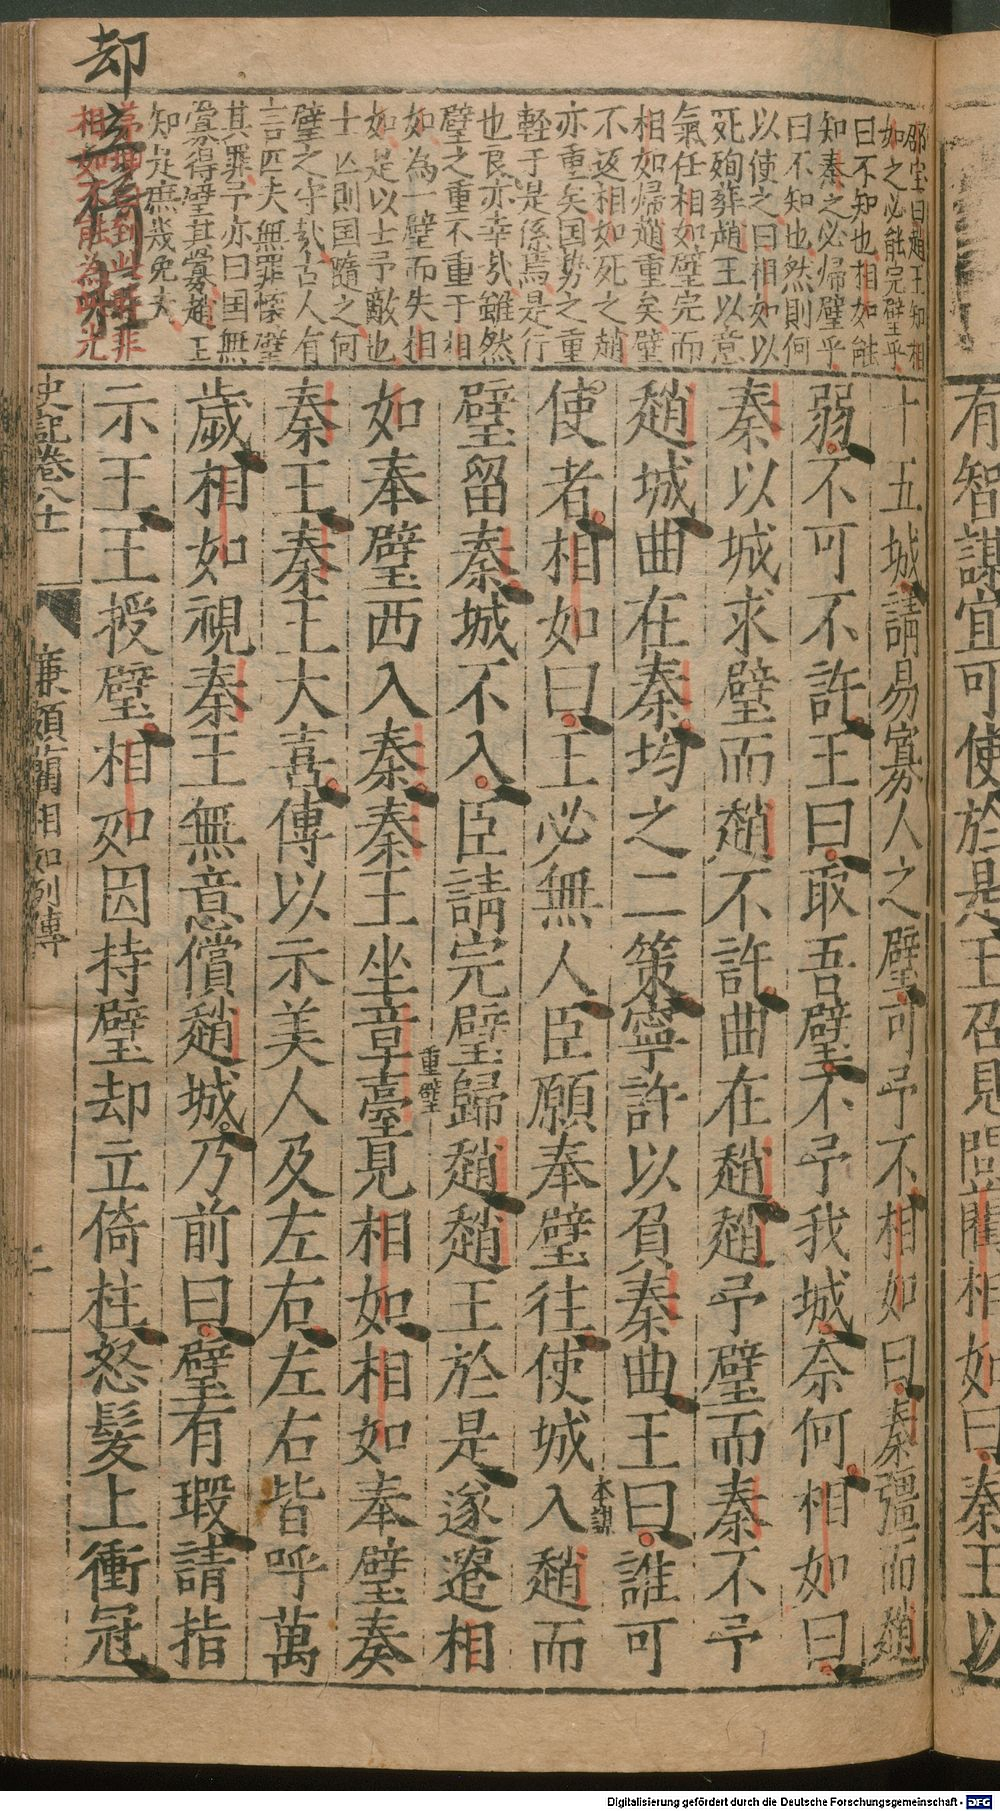 有智謀宜可使於是王召見問藺相如曰秦王以
十五城請易寡人之璧可予不相如曰秦彊而趙
弱不可不許王曰取吾璧不予我城奈何相如曰
秦以城求璧而趙不許曲在趙趙予璧而秦不予
趙城曲在秦均之二策寧許以負秦曲王曰誰可
本訓
使者相如曰王必無人臣願奉璧往使城入趙而
璧留秦城不入臣請完璧歸趙趙王於是遂遣相
重璧
如奉璧西入秦秦王坐章臺見相如相如奉璧奏
秦王秦王大喜傳以示美人及左右左右皆呼萬
歲相如視秦王無意償趙城乃前曰璧有瑕請指
示王王授璧相如因持璧却立倚柱怒髮上衝冠
邵宝曰趙王知相
如之必能完璧乎
曰不知也相如能
知秦之必歸璧乎
曰不知也然則何
以使之曰相如以
死殉葬趙王以意
氣任相如璧完而
相如帰趙重矣璧
不返相如死之趙
亦重矣国势之重
輕于是係焉是行
也良亦幸㢤雖然
璧之重不重于相
如為一璧而失相
如是以士予敵也
士亾則国隨之何
璧之守㢤古人有
言匹夫無罪懷璧
其罪予亦曰国無
寡得璧其寡趙王
知是庶幾免夫
相如不能為
却立
史記卷八十一
廉頗藺相如列傳
二
Digitalisierung gefördert durch die Deutsche Forschungsgemeinschaft - DFG